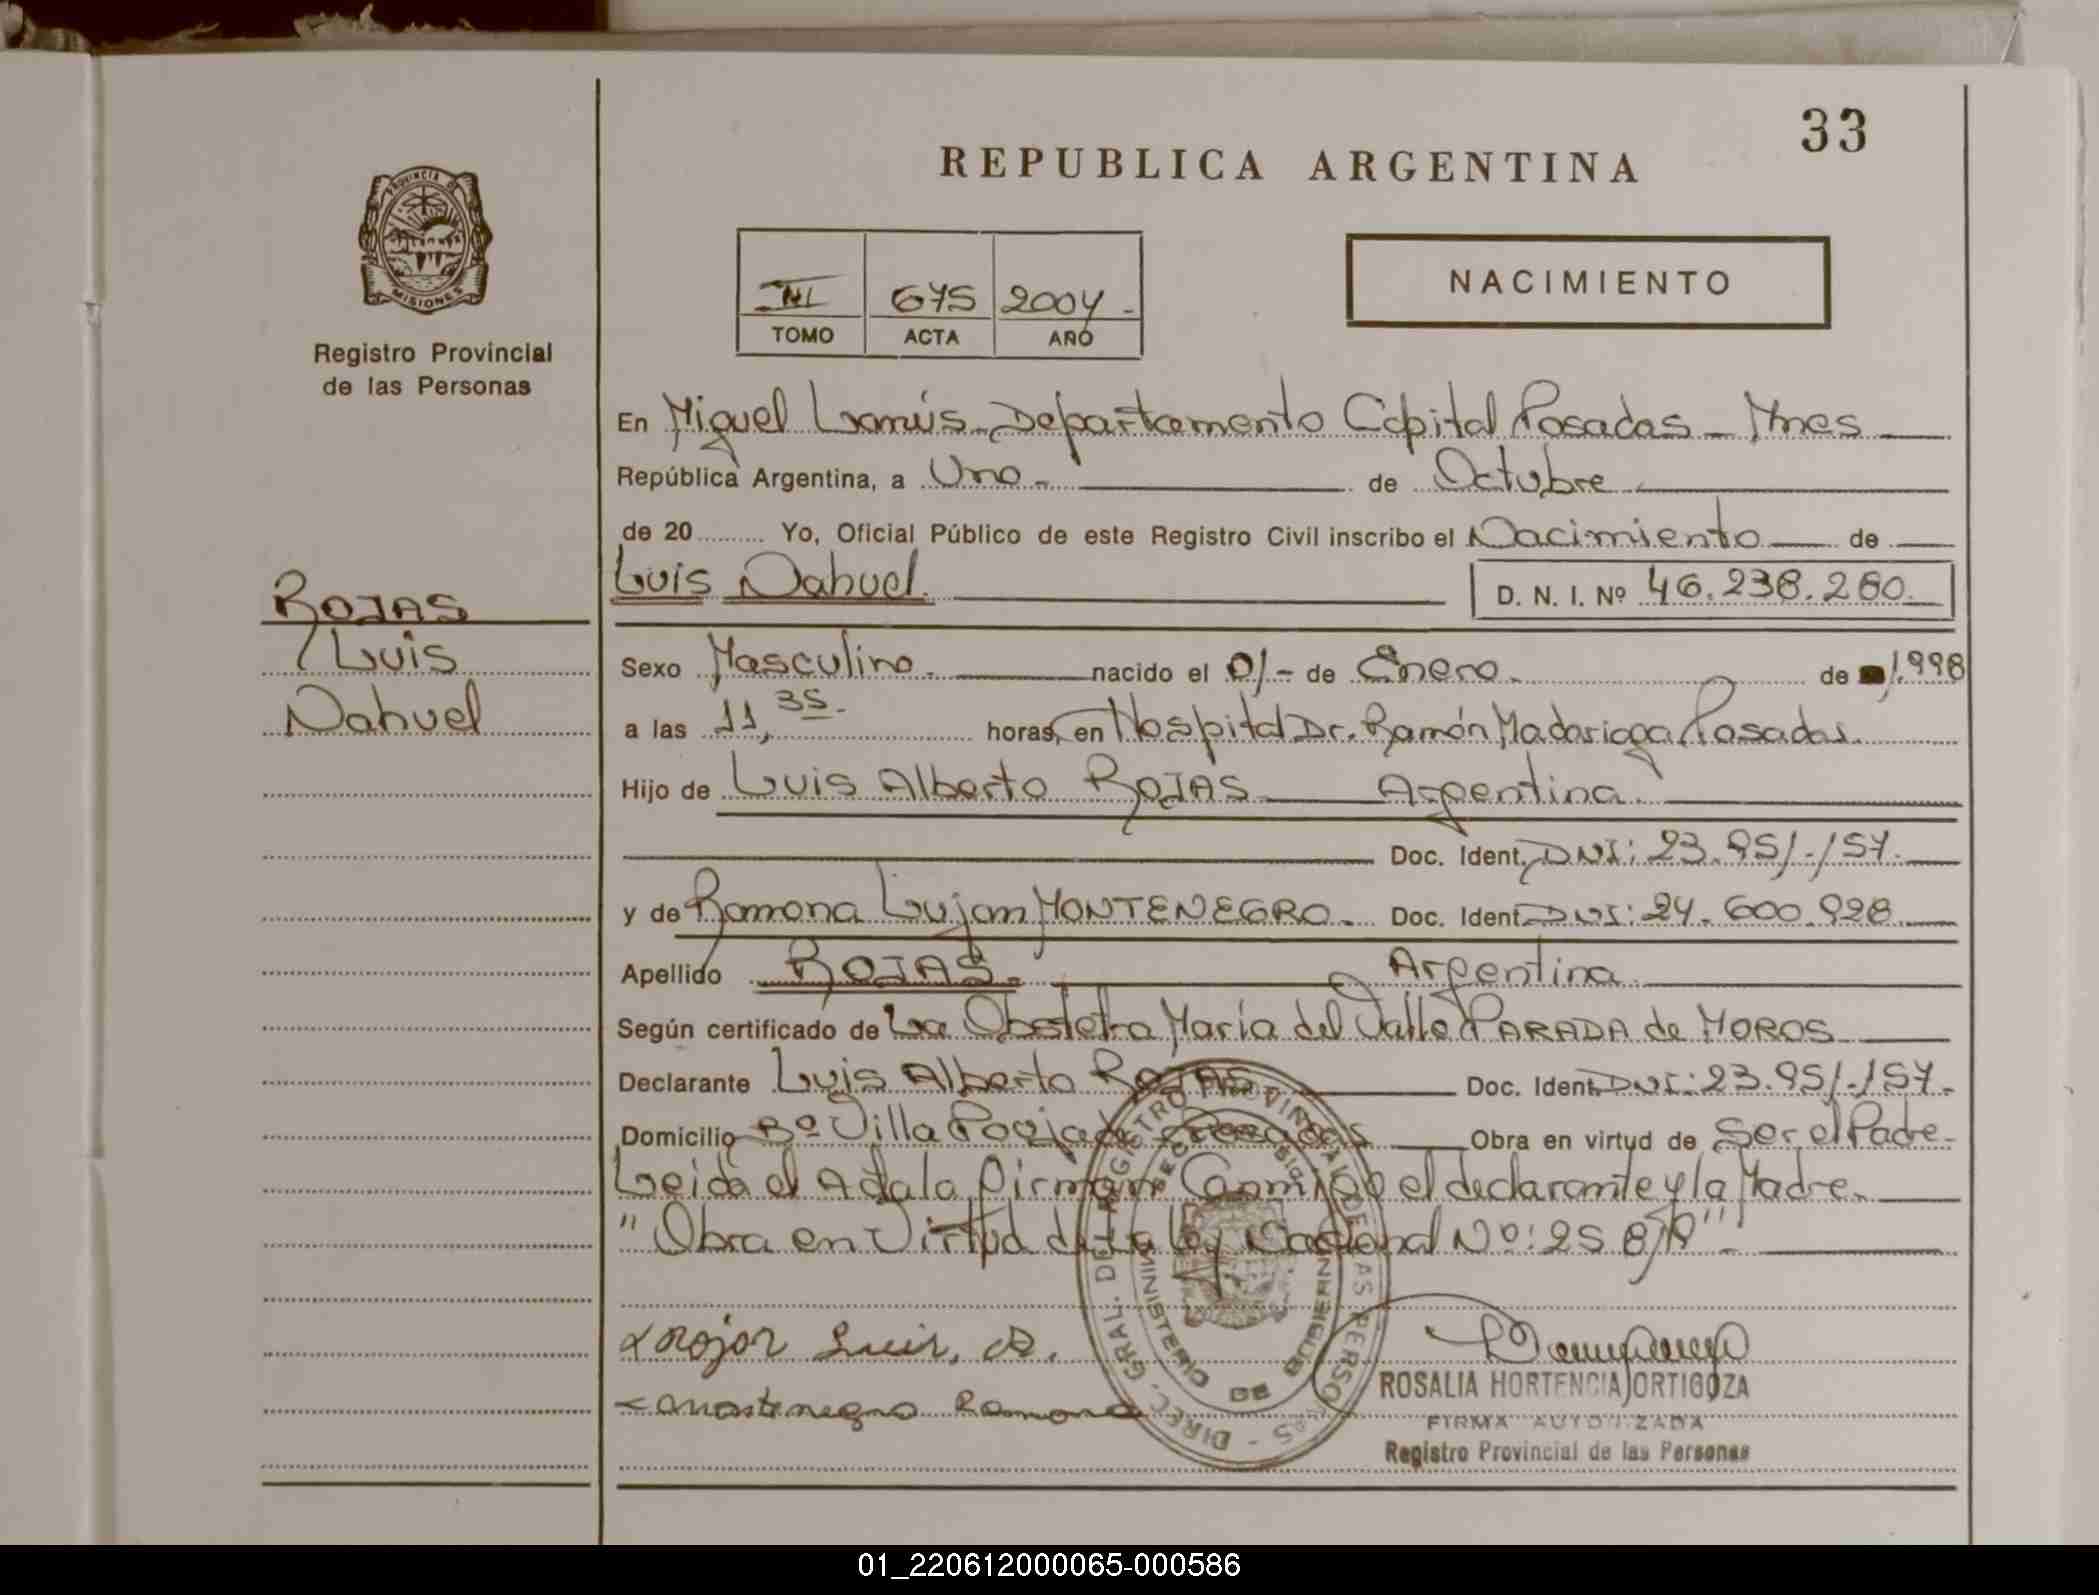 33
REPUBLICA ARGENTINA
PROVINCIA DE
MISIONES
Registro Provincial
de las Personas
675 2004 -
TOMO ACTA AÑO
NACIMIENTO
En Miguel Lanús - Departamento Capital Posadas - Mnes
República Argentina, a Uno - de Octubre
de 20 Yo, Oficial Público de este Registro Civil inscribo el Nacimiento de
Luis Nahuel. D. N. I. Nº 46.238.280.
ROJAS
Luis
Nahuel
Sexo Masculino. nacido el 01 - de Enero. de 1.998
a las 11,35. horas, en Hospital Dr. Ramón Madariaga Posadas.
Hijo de Luis Alberto ROJAS Argentina.
Doc. Ident. DNI: 23.951.157.
y de Ramona Lujan MONTENEGRO. Doc. Ident. DNI: 24.600.928
Apellido ROJAS. Argentina.
Según certificado de La Obstetra María del Valle PARADA de MOROS
Declarante Luis Alberto ROJAS Doc. Ident. DNI: 23.951.157.
Domicilio Bº Villa Poujade Posadas Obra en virtud de Ser el Padre -
Leida el Acta la Firman Conmigo el declarante y la Madre.
"Obra en Virtud de la ley Nacional Nº: 25.819".
Rojas Luis. A.
Montenegro Ramona
DIREC. GRAL. DEL REGISTRO PROVINCIAL DE LAS PERSONAS -
MINISTERIO DE GOBIERNO
ROSALIA HORTENCIA ORTIGOZA
FIRMA AUTORIZADA
Registro Provincial de las Personas
01_220612000065-000586